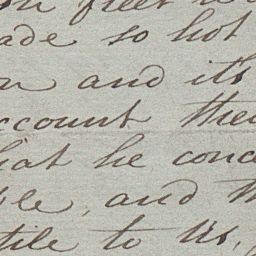 fleet
ade so hot
and it's
ccount
hat he conce
and
tile to Us,